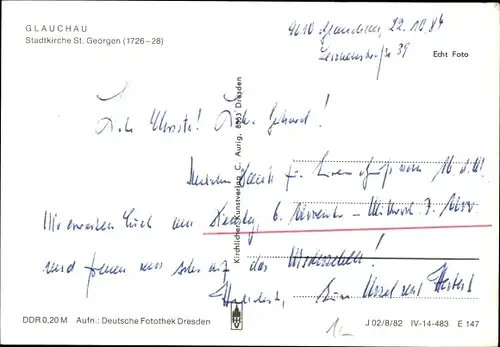 GLAUCHAU
Stadtkirche St. Georgen (1726–28)
9610 Glauchau, 22.10.84
39
Echt Foto
Kirchlicher Kunstverlag C. Aurig, 8053 Dresden
Liebe Christa! Lieber Gerhard!
Herzlichen Dank für Euren Gruß vom 16. d. M.
Wir erwarten Euch am Dienstag, 6. November – Mittwoch, 7. Nov.
und freuen uns sehr auf das Wiedersehen!
Herzlichst, Eure Ursel und Herbert
DDR 0,20 M Aufn.: Deutsche Fotothek Dresden
J 02/8/82 IV-14-483 E 147